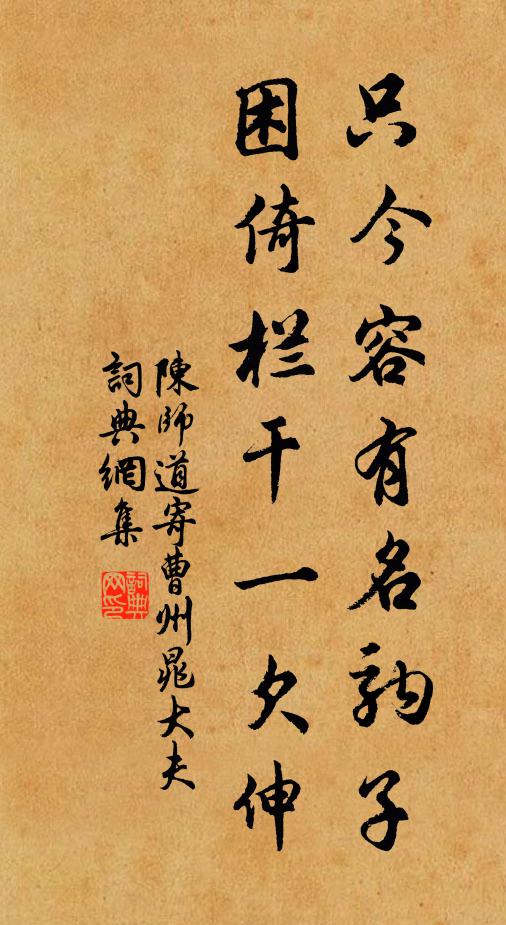 只今容有名駒子
困倚栏干一欠伸
陳師道寄曹州晁大夫
詞典網集
詞典
网印